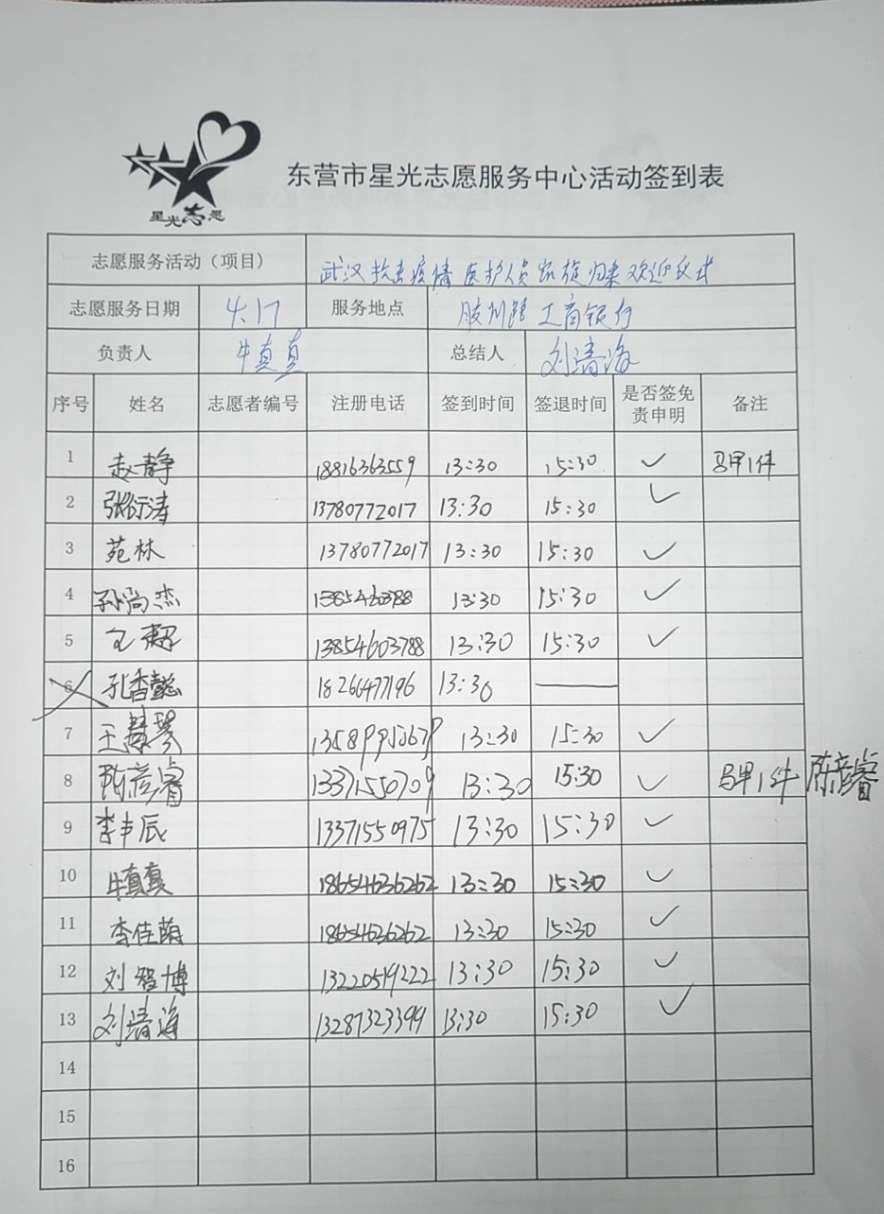 星光志愿
东营市星光志愿服务中心活动签到表
志愿服务活动（项目） 武汉抗击疫情 医护人员凯旋归来欢迎仪式
志愿服务日期 4.17 服务地点 胶州路工商银行
负责人 牛真真 总结人 刘清海
序号 姓名 志愿者编号 注册电话 签到时间 签退时间 是否签免责申明 备注
1 赵静 18816363559 13:30 15:30 ✓ 马甲1件
2 张衍涛 13780772017 13:30 15:30 ✓
3 苑林 13780772017 13:30 15:30 ✓
4 孙尚杰 13:30 15:30 ✓
5 王超 13854603788 13:30 15:30 ✓
6 孔香懿 18266477196 13:30 —
7 王慧琴 13:30 15:30 ✓
8 陈彦睿 13371550709 13:30 15:30 ✓ 马甲1件 陈彦睿
9 李丰辰 13371550975 13:30 15:30 ✓
10 牛真真 18654636262 13:30 15:30 ✓
11 李佳萌 18654636262 13:30 15:30 ✓
12 刘智博 13220519222 13:30 15:30 ✓
13 刘清海 13287323399 13:30 15:30 ✓
14
15
16